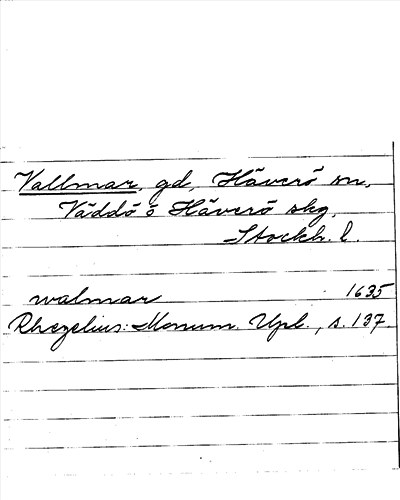 Vallmar, gd, Häverö sn,
Väddö o Häverö skg,
Stockh. l.
walmar 1635
Rhezelius: Monum. Upl., s. 137.